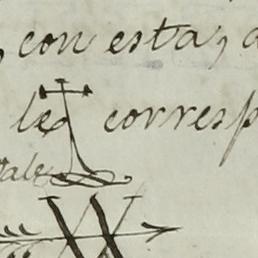 , con esta; a
le corresp
Vale